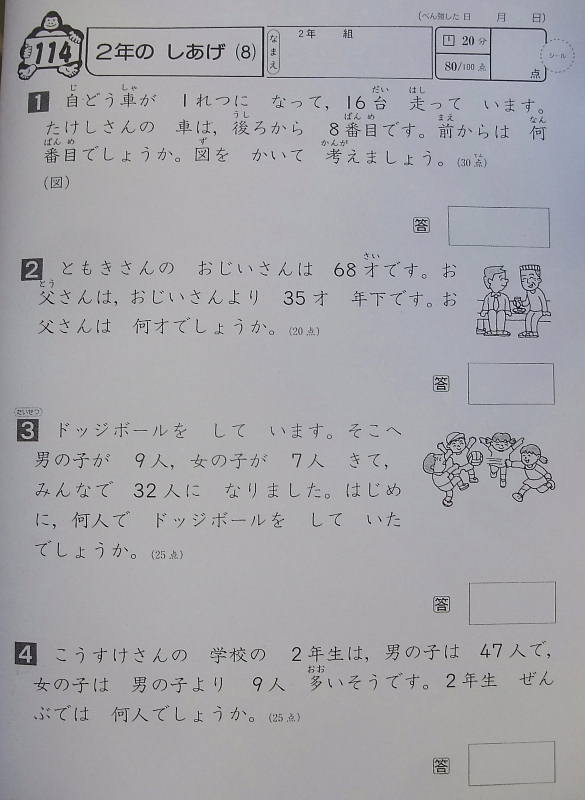 (べん強した日 月 日)
114
2年の しあげ (8)
なまえ
2年 組
20分
80/100点
点
シール
1 自どう車が 1れつに なって, 16台 走って います。
たけしさんの 車は, 後ろから 8番目です。前からは 何
番目でしょうか。図を かいて 考えましょう。(30点)
(図)
答
2 ともきさんの おじいさんは 68才です。お
父さんは, おじいさんより 35才 年下です。お
父さんは 何才でしょうか。(20点)
答
たいせつ
3 ドッジボールを して います。そこへ
男の子が 9人, 女の子が 7人 きて,
みんなで 32人に なりました。はじめ
に, 何人で ドッジボールを して いた
でしょうか。(25点)
答
4 こうすけさんの 学校の 2年生は, 男の子は 47人で,
女の子は 男の子より 9人 多いそうです。2年生 ぜん
ぶでは 何人でしょうか。(25点)
答